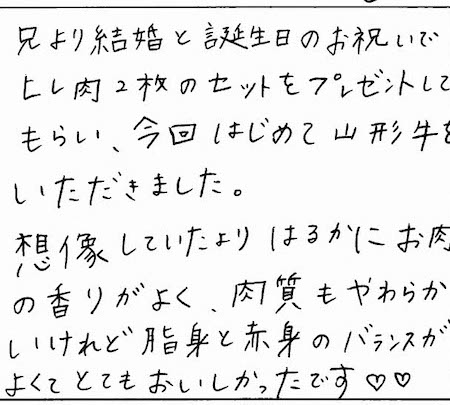 兄より結婚と誕生日のお祝いで
ヒレ肉2枚のセットをプレゼントして
もらい、今回はじめて山形牛を
いただきました。
想像していたよりはるかにお肉
の香りがよく、肉質もやわらか
いけれど脂身と赤身のバランスが
よくてとてもおいしかったです♡♡